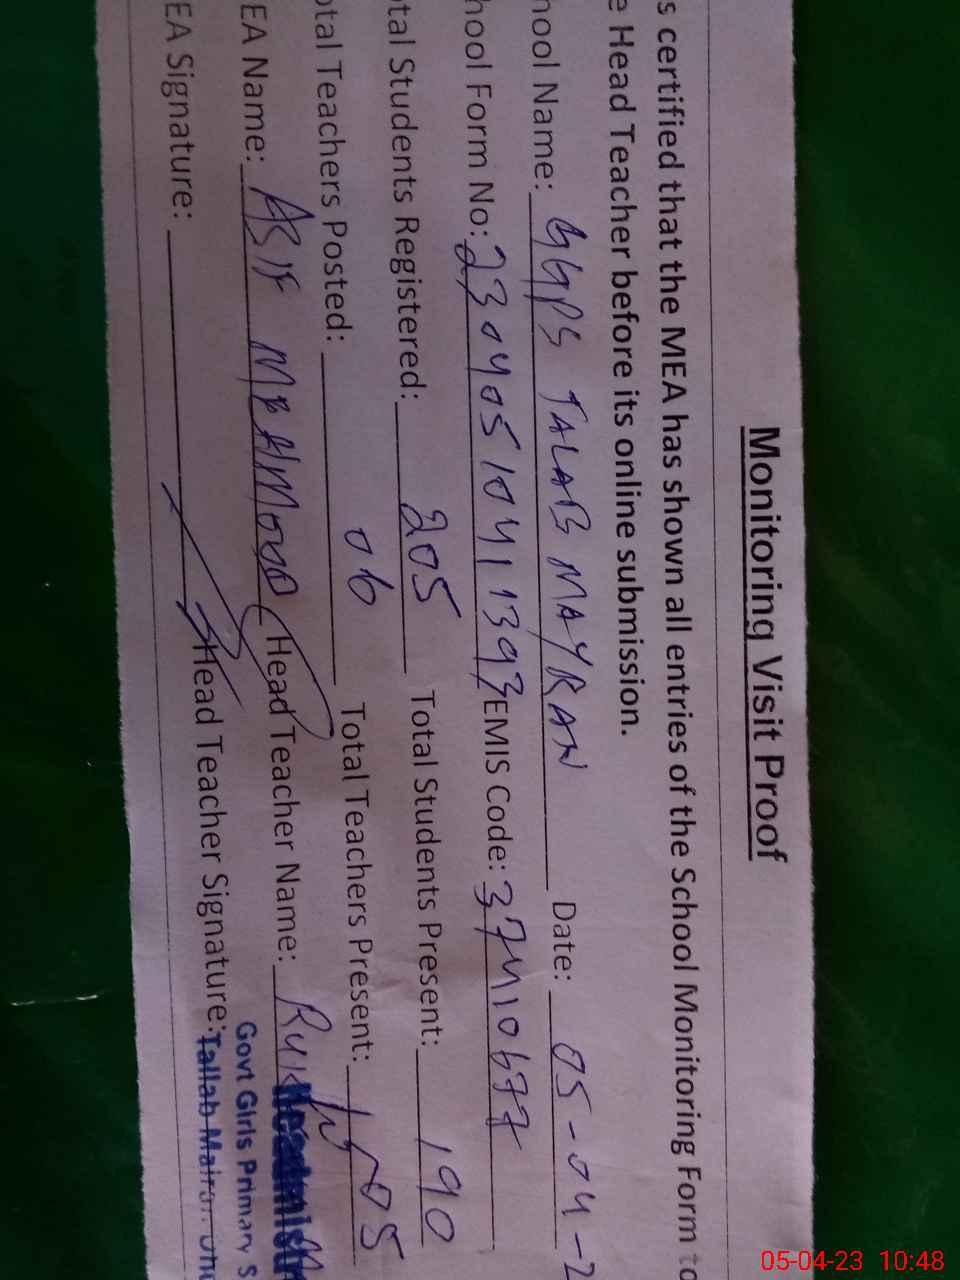 Monitoring Visit Proof
s certified that the MEA has shown all entries of the School Monitoring Form to
e Head Teacher before its online submission.
hool Name: GGPS TALAB MAYRAN Date: 05-04-2
hool Form No: 23040510411393 EMIS Code: 37410677
tal Students Registered: 205 Total Students Present: 190
otal Teachers Posted: 06 Total Teachers Present: 05
EA Name: ASIF MEHMOOD Head Teacher Name:
EA Signature: Head Teacher Signature:
Govt Girls Primary S
Tallab Mairan
05-04-23 10:48